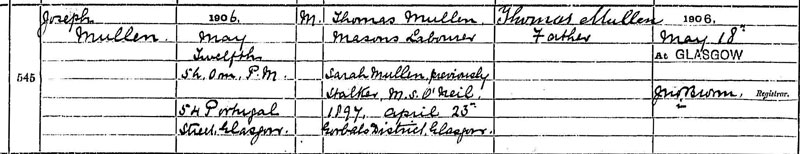 545
Joseph
Mullen
1906
May
Twelfth
5h. 0m. P.M.
54 Portugal
Street, Glasgow.
M.
Thomas Mullen
Masons Labourer
Sarah Mullen, previously
Stalker, M.S. O'Neil.
1897. April 23rd
Gorbals District, Glasgow.
Thomas Mullen
Father
1906.
May 18th
At GLASGOW
Registrar.